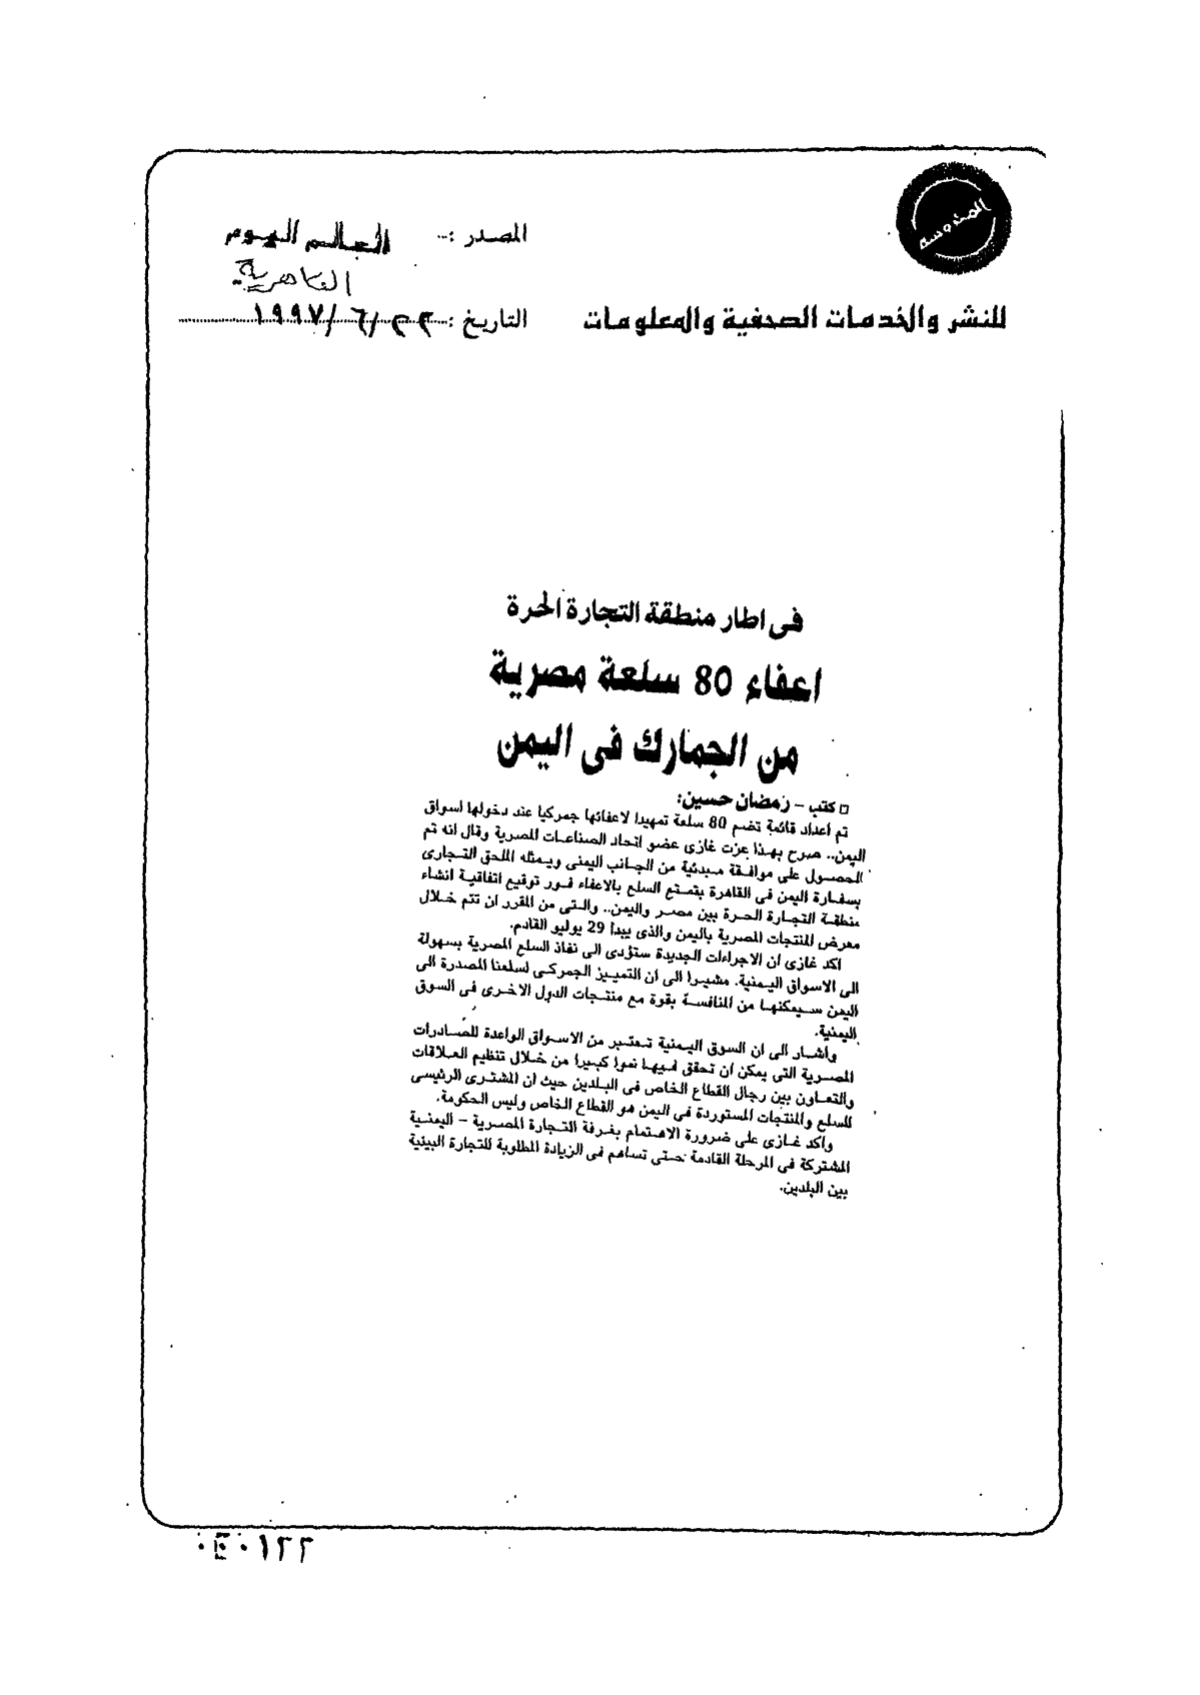 المحروسة
المصدر :
العالم اليوم
القاهرية
للنشر والخدمات الصحفية والمعلومات
التاريخ : ٢٢/٦/١٩٩٧
فى اطار منطقة التجارة الحرة
اعفاء 80 سلعة مصرية
من الجمارك فى اليمن
كتب – رمضان حسين:
تم اعداد قائمة تضم 80 سلعة تمهيدا لاعفائها جمركيا عند دخولها اسواق
اليمن.. صرح بهذا عزت غازى عضو اتحاد الصناعات المصرية وقال انه تم
الحصول على موافقة مبدئية من الجانب اليمنى ويمثله الملحق التجارى
بسفارة اليمن فى القاهرة بتمتع السلع بالاعفاء فور توقيع اتفاقية انشاء
منطقة التجارة الحرة بين مصر واليمن.. والتى من المقرر ان تتم خلال
معرض المنتجات المصرية باليمن والذى يبدأ 29 يوليو القادم.
اكد غازى ان الاجراءات الجديدة ستؤدى الى نفاذ السلع المصرية بسهولة
الى الاسواق اليمنية. مشيرا الى ان التمييز الجمركى لسلعنا المصدرة الى
اليمن سيمكنها من المنافسة بقوة مع منتجات الدول الاخرى فى السوق
اليمنية.
واشار الى ان السوق اليمنية تعتبر من الاسواق الواعدة للصادرات
المصرية التى يمكن ان تحقق فيها نموا كبيرا من خلال تنظيم العلاقات
والتعاون بين رجال القطاع الخاص فى البلدين حيث ان المشترى الرئيسى
للسلع والمنتجات المستوردة فى اليمن هو القطاع الخاص وليس الحكومة.
واكد غازى على ضرورة الاهتمام بغرفة التجارة المصرية – اليمنية
المشتركة فى المرحلة القادمة حتى تساهم فى الزيادة المطلوبة للتجارة البينية
بين البلدين.